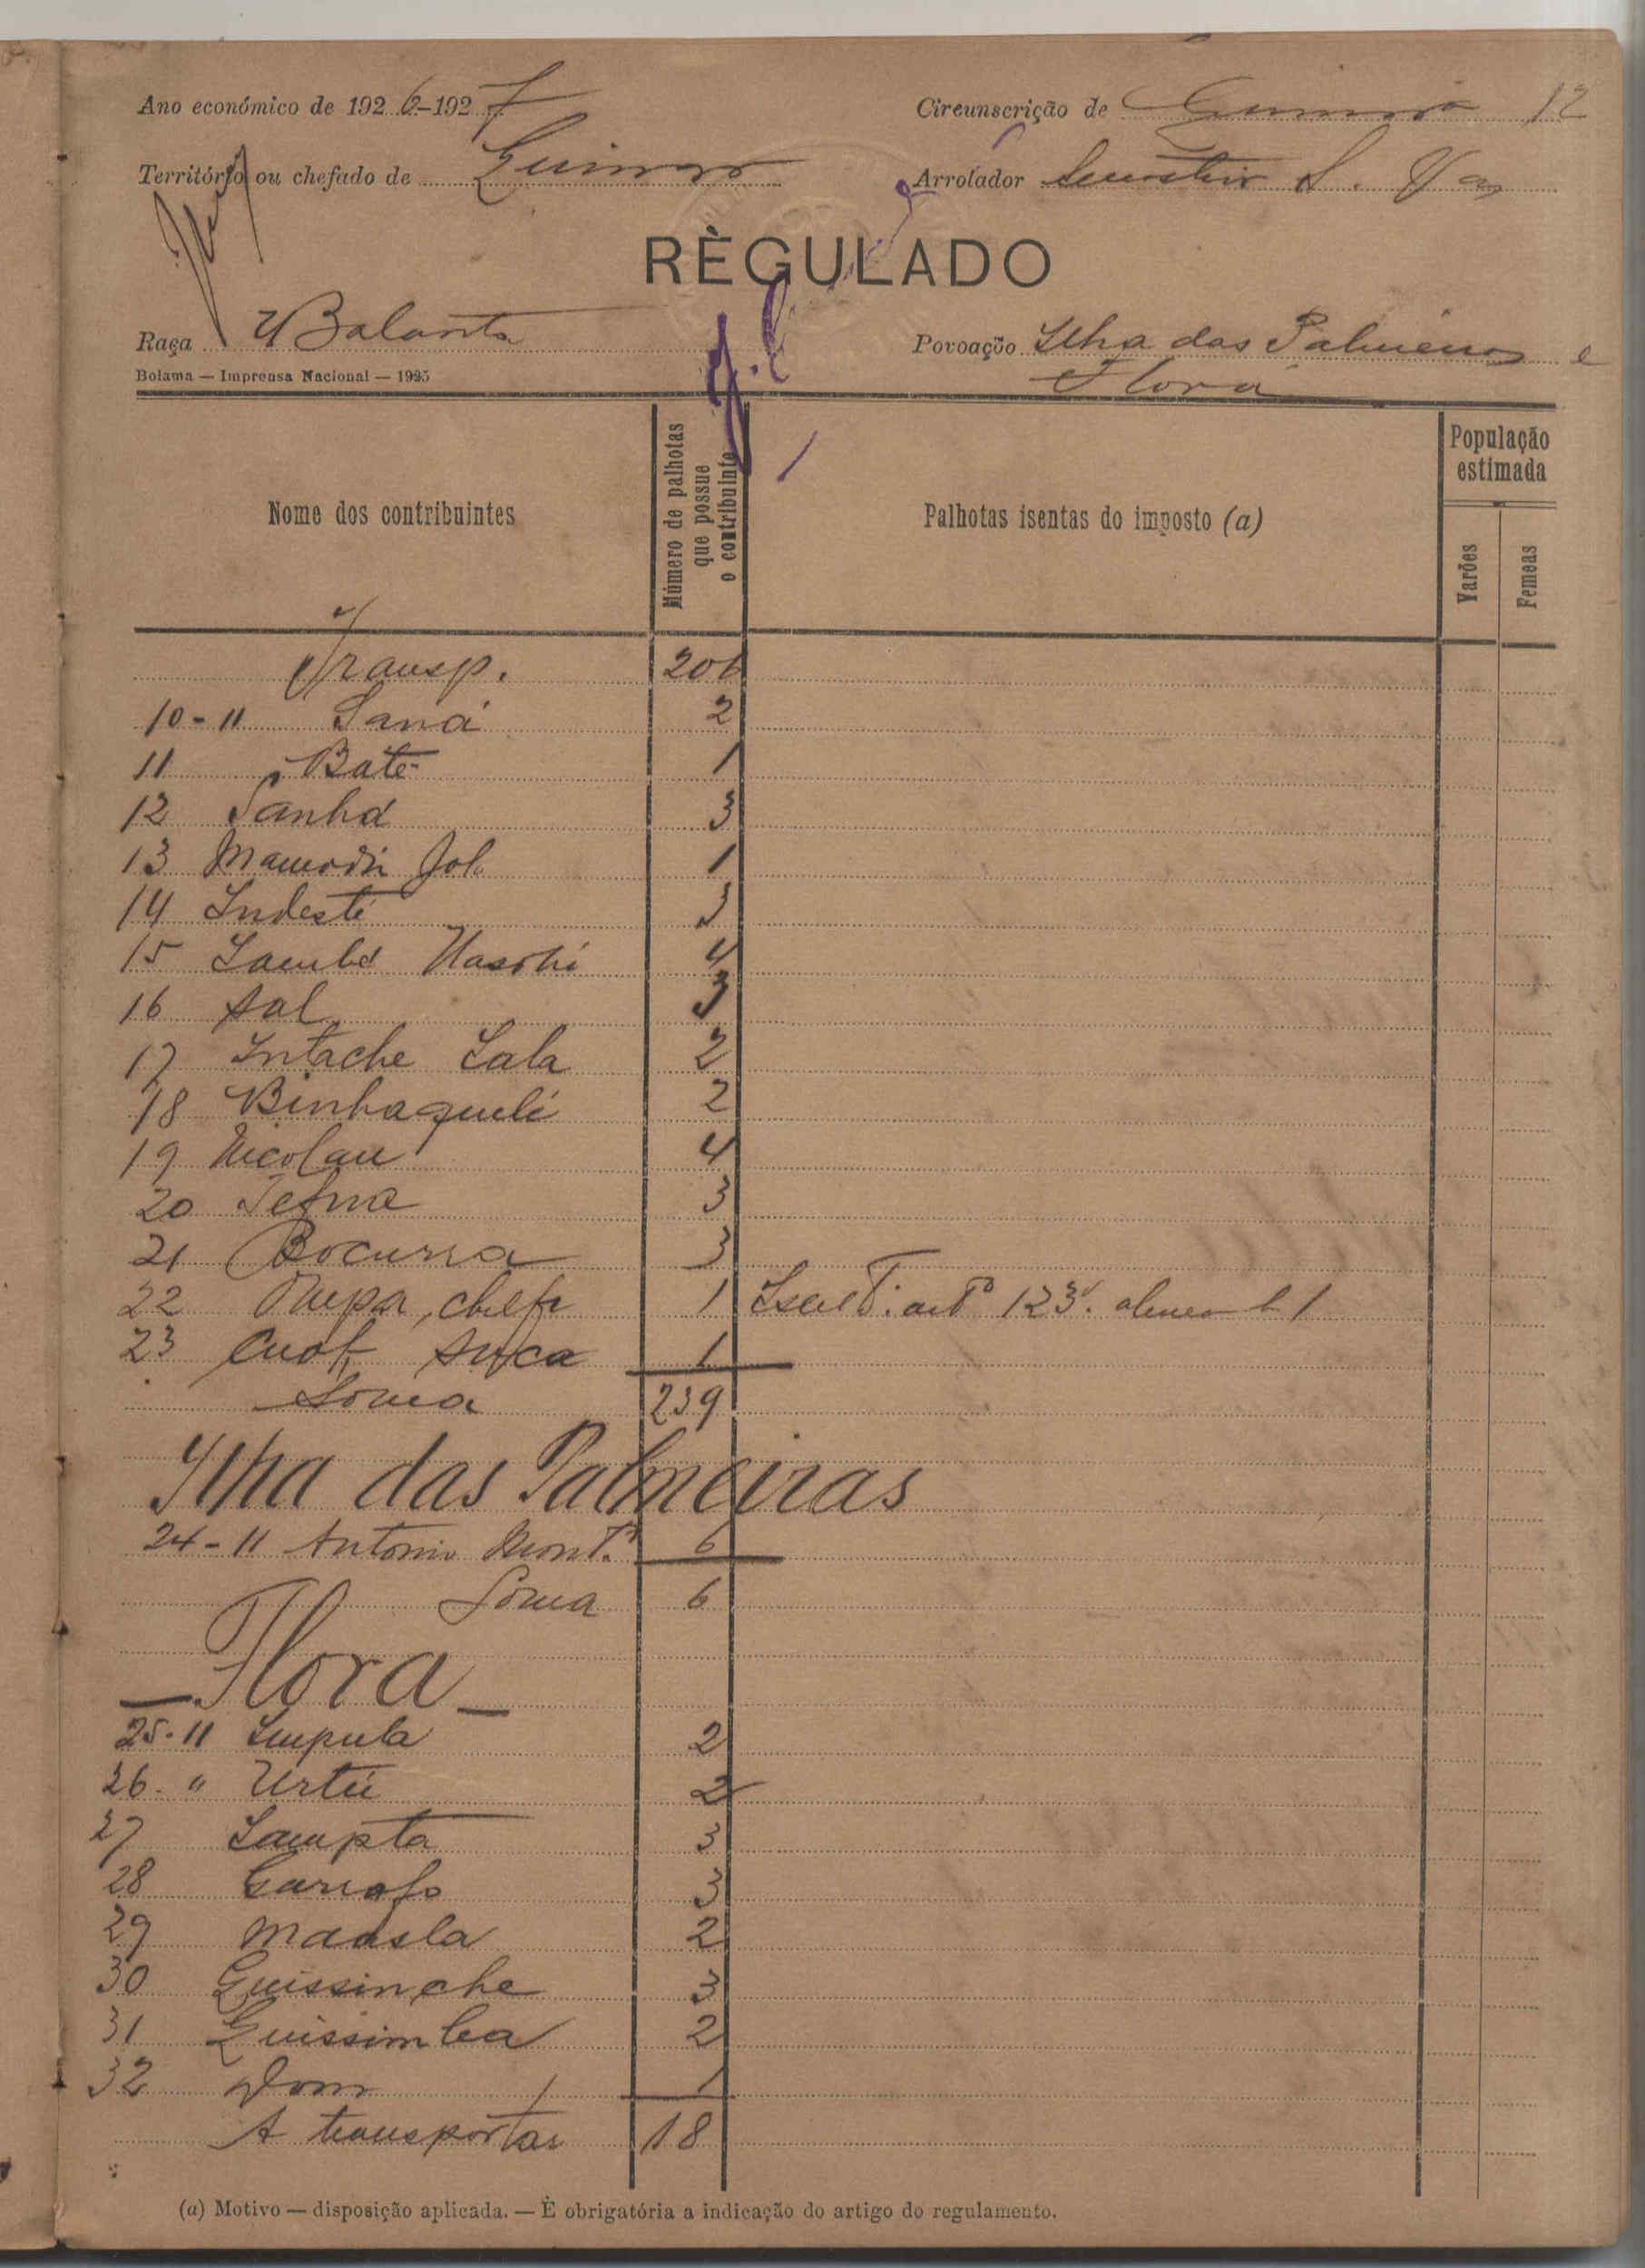 Ano económico de 1926-1927
Circunscrição de 12
Território ou chefado de
Arrolador S. Vaz
RÈGULADO
Raça Balanta
Povoação Ilha das Palmeiras e
Flora
Bolama — Imprensa Nacional — 1925
Nome dos contribuintes
Número de palhotas que possue o contribuinte
Palhotas isentas do imposto (a)
População estimada
Varões
Femeas
Transp. 206
10-11 Saná 2
11 Bate 1
12 Sanhá 3
13 1
14 Indesté 3
15 4
16 Sal 3
17 Intache Lala 2
18 Binhaquelé 2
19 Nicolau 4
20 3
21 Bocurra 3
22 chefe 1 Isent. artº 123. alinea b 1
23 1
Soma 239
Ilha das Palmeiras
24-11 Antonio Mont.º 6
Soma 6
— Flora —
25-11 Impula 2
26 " Urtú 2
27 3
28 3
29 2
30 Guissinche 3
31 Guissimba 2
32 Dom 1
A transportar 18
(a) Motivo — disposição aplicada. — È obrigatória a indicação do artigo do regulamento.